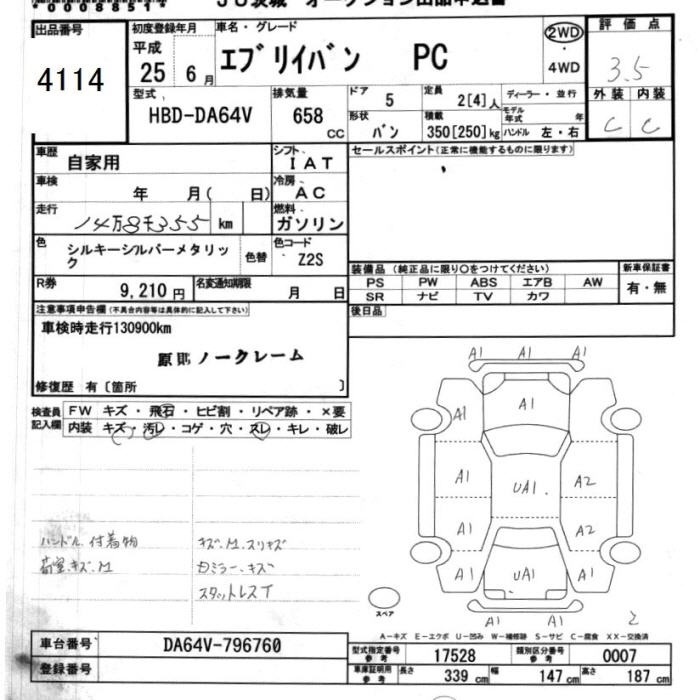 *0008851*
JU茨城 オークション出品申込書
出品番号
4114
初度登録年月
平成
25 6月
車名・グレード
エブリイバン PC
2WD
・
4WD
評価点
3.5
外装 内装
C C
型式
HBD-DA64V
排気量
658
CC
ドア
5
定員
2[4]人
ディーラー・並行
形状
バン
積載
350[250]kg
モデル年式 年
ハンドル 左・右
車歴
自家用
シフト
IAT
セールスポイント(正常に機能するものに限ります)
車検
年 月( 日)
冷房
AC
走行
14万8千355 km
燃料
ガソリン
色
シルキーシルバーメタリック
色替
色コード
Z2S
装備品(純正品に限り○をつけてください)
PS PW ABS エアB AW
SR ナビ TV カワ
新車保証書
有・無
R券
9,210円
名変通知期限
月 日
後日品
注意事項申告欄(不具合内容等は具体的に記入して下さい)
車検時走行130900km
原則ノークレーム
修復歴 有〔箇所 〕
検査員記入欄
FW キズ・飛石・ヒビ割・リペア跡・×要
内装 キズ・汚レ・コゲ・穴・スレ・キレ・破レ
ハンドル付着物
荷室.キズ.凹
キズ.凹.スリキズ
カミラー.キズ
スタットレスT
A1 A1
A1
A1
A1
UA1.
A2
A1
A2
A1
UA1
A1
A1 A1
スペア
2
A-キズ E-エクボ U-凹み W-補修跡 S-サビ C-腐食 XX-交換済
車台番号
DA64V-796760
登録番号
型式指定番号
参考
17528
類別区分番号
参考
0007
車庫証明用
参考
長さ
339 cm
幅
147 cm
高さ
187 cm